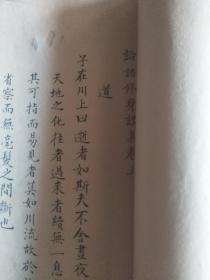 論語修身講義卷上
道
子在川上曰逝者如斯夫不舍晝夜
天地之化往者過來者續無一息
其可指而易見者莫如川流故於
省察而無毫髮之間斷也